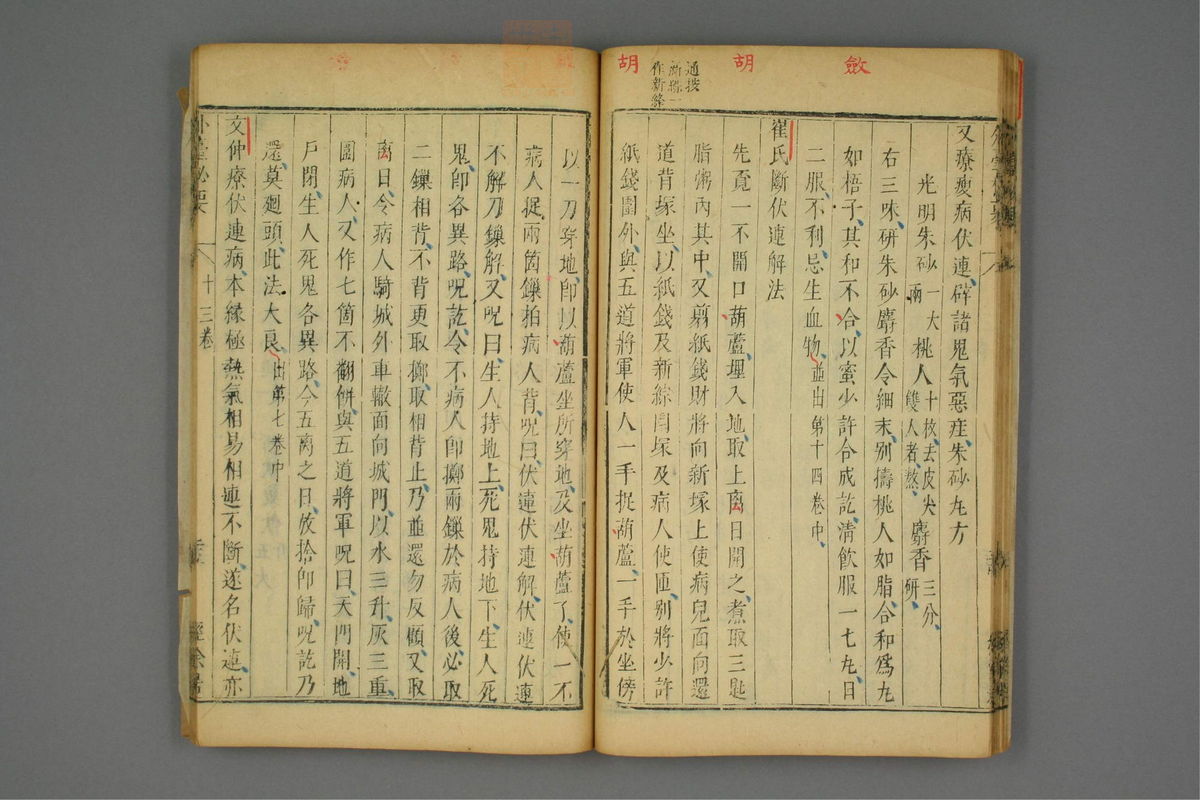 歛
胡
胡
通按
新綜一
作新絳
又療瘦病伏連辟諸鬼氣惡疰朱砂丸方
光明朱砂一大兩 桃人十枚去皮尖雙人者熬 麝香三分研
右三味研朱砂麝香令細末別擣桃人如脂合和爲丸
如梧子其和不合以蜜少許合成訖清飲服一七丸日
二服不利忌生血物並出第十四卷中
崔氏斷伏連解法
先覓一不開口葫蘆埋入地取上离日開之煮取三匙
脂粥內其中又剪紙錢財將向新塚上使病兒面向還
道背塚坐以紙錢及新綜圍塚及病人使匝別將少許
紙錢圍外與五道將軍使人一手捉葫蘆一手於坐傍
以一刀穿地卽以葫蘆坐所穿地及坐葫蘆了使一不
病人捉兩箇鏁拍病人背呪曰伏連伏連解伏連伏連
不解刀鏁解又呪曰生人持地上死鬼持地下生人死
鬼卽各異路呪訖令不病人卽擲兩鏁於病人後必取
二鏁相背不背更取擲取相背止乃並還勿反顧又取
离日令病人騎城外車轍面向城門以水三升灰三重
圍病人又作七箇不翻餅與五道將軍呪曰天門開地
戶閉生人死鬼各異路今五离之日放捨卽歸呪訖乃
還莫廻頭此法大良出第七卷中
文仲療伏連病本緣極熱氣相易相連不斷遂名伏連亦
外臺秘要
十三卷
經餘居